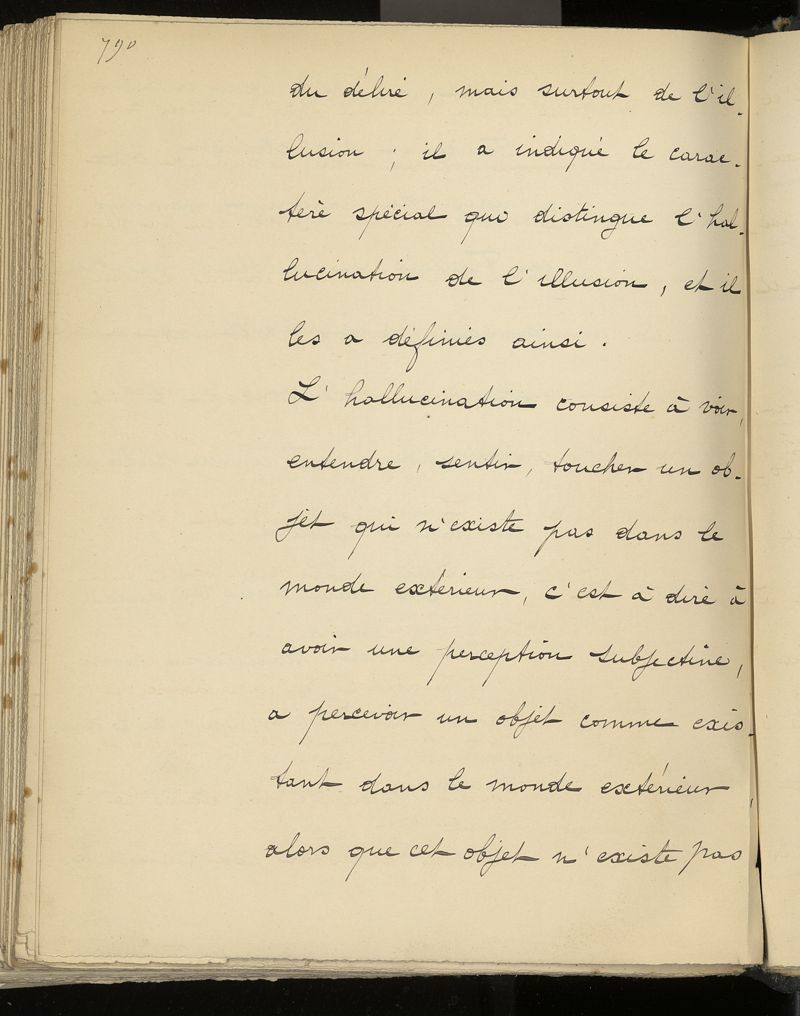 790
du délire, mais surtout de l'il-
lusion ; il a indiqué le carac-
tère spécial qui distingue l'hal-
lucination de l'illusion, et il
les a définies ainsi.
L'hallucination consiste à voir,
entendre, sentir, toucher un ob-
jet qui n'existe pas dans le
monde extérieur, c'est à dire à
avoir une perception subjective,
a percevoir un objet comme exis-
tant dans le monde extérieur
alors que cet objet n'existe pas